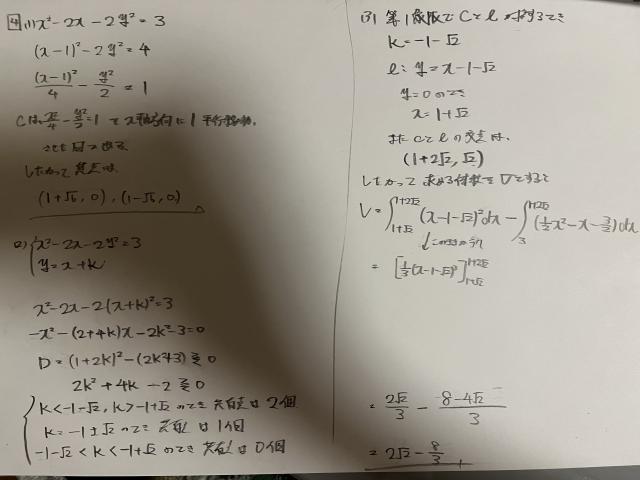 4 (1) x² - 2x - 2y² = 3
(x-1)² - 2y² = 4
(x-1)²/4 - y²/2 = 1
Cは、x²/4 - y²/2 = 1 を x軸方向に 1 平行移動
したがって 焦点は、
(1+√6, 0), (1-√6, 0)
(2) { x² - 2x - 2y² = 3
y = x + k
x² - 2x - 2(x+k)² = 3
-x² - (2+4k)x - 2k² - 3 = 0
D = (1+2k)² - (2k²+3) ⋛ 0
2k² + 4k - 2 ⋛ 0
{ k < -1-√2, k > -1+√2 のとき 共有点は 2個
k = -1±√2 のとき 共有点は 1個
-1-√2 < k < -1+√2 のとき 共有点は 0個
(3) 第1象限で Cとl が接するとき
k = -1-√2
l: y = x-1-√2
y=0 のとき
x = 1+√2
また Cとlの交点は、
(1+2√2, √2)
したがって 求める体積を Vとすると
V = ∫_{1+√2}^{1+2√2} (x-1-√2)² dx - ∫_{3}^{1+2√2} (½x² - x - 3/2) dx
= [⅓(x-1-√2)³]_{1+√2}^{1+2√2}
= 2√2/3 - (8-4√2)/3
= 2√2 - 8/3